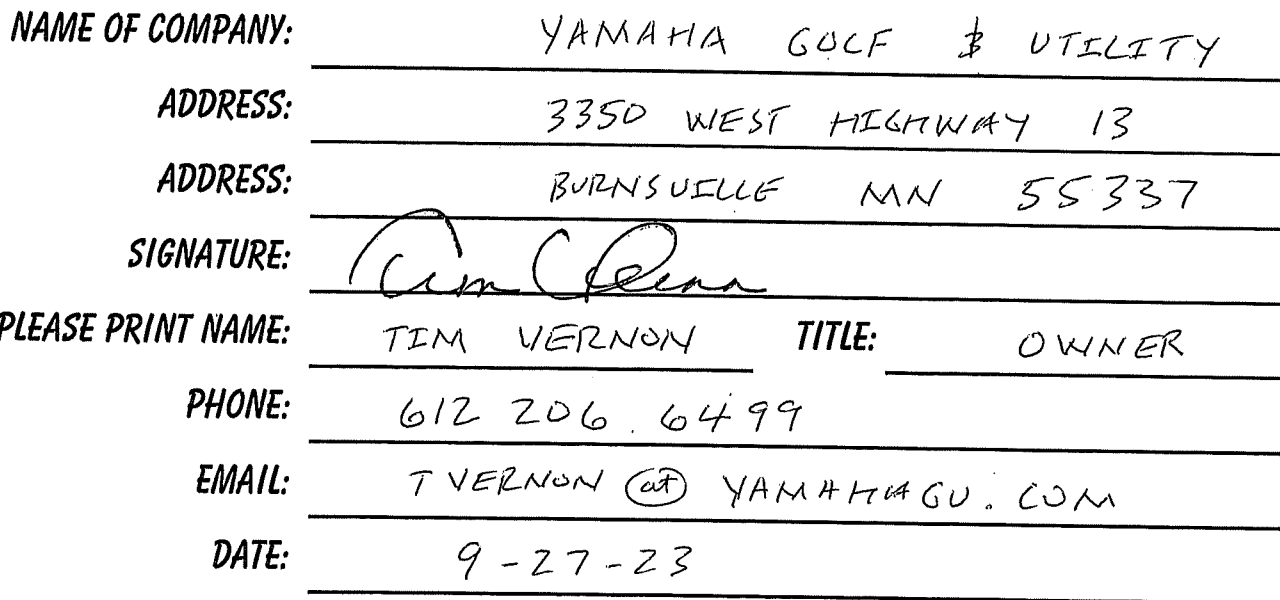 NAME OF COMPANY: YAMAHA GOLF & UTILITY
ADDRESS: 3350 WEST HIGHWAY 13
ADDRESS: BURNSVILLE MN 55337
SIGNATURE:
PLEASE PRINT NAME: TIM VERNON TITLE: OWNER
PHONE: 612 206.6499
EMAIL: TVERNON @ YAMAHAGU.COM
DATE: 9-27-23